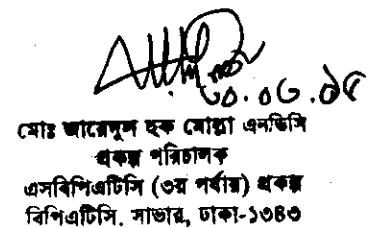 ৩০.০৬.১৫
মোঃ জাহেদুল হক মোল্লা এনডিসি
প্রকল্প পরিচালক
এসবিপিএটিসি (৩য় পর্যায়) প্রকল্প
বিপিএটিসি. সাভার, ঢাকা-১৩৪৩